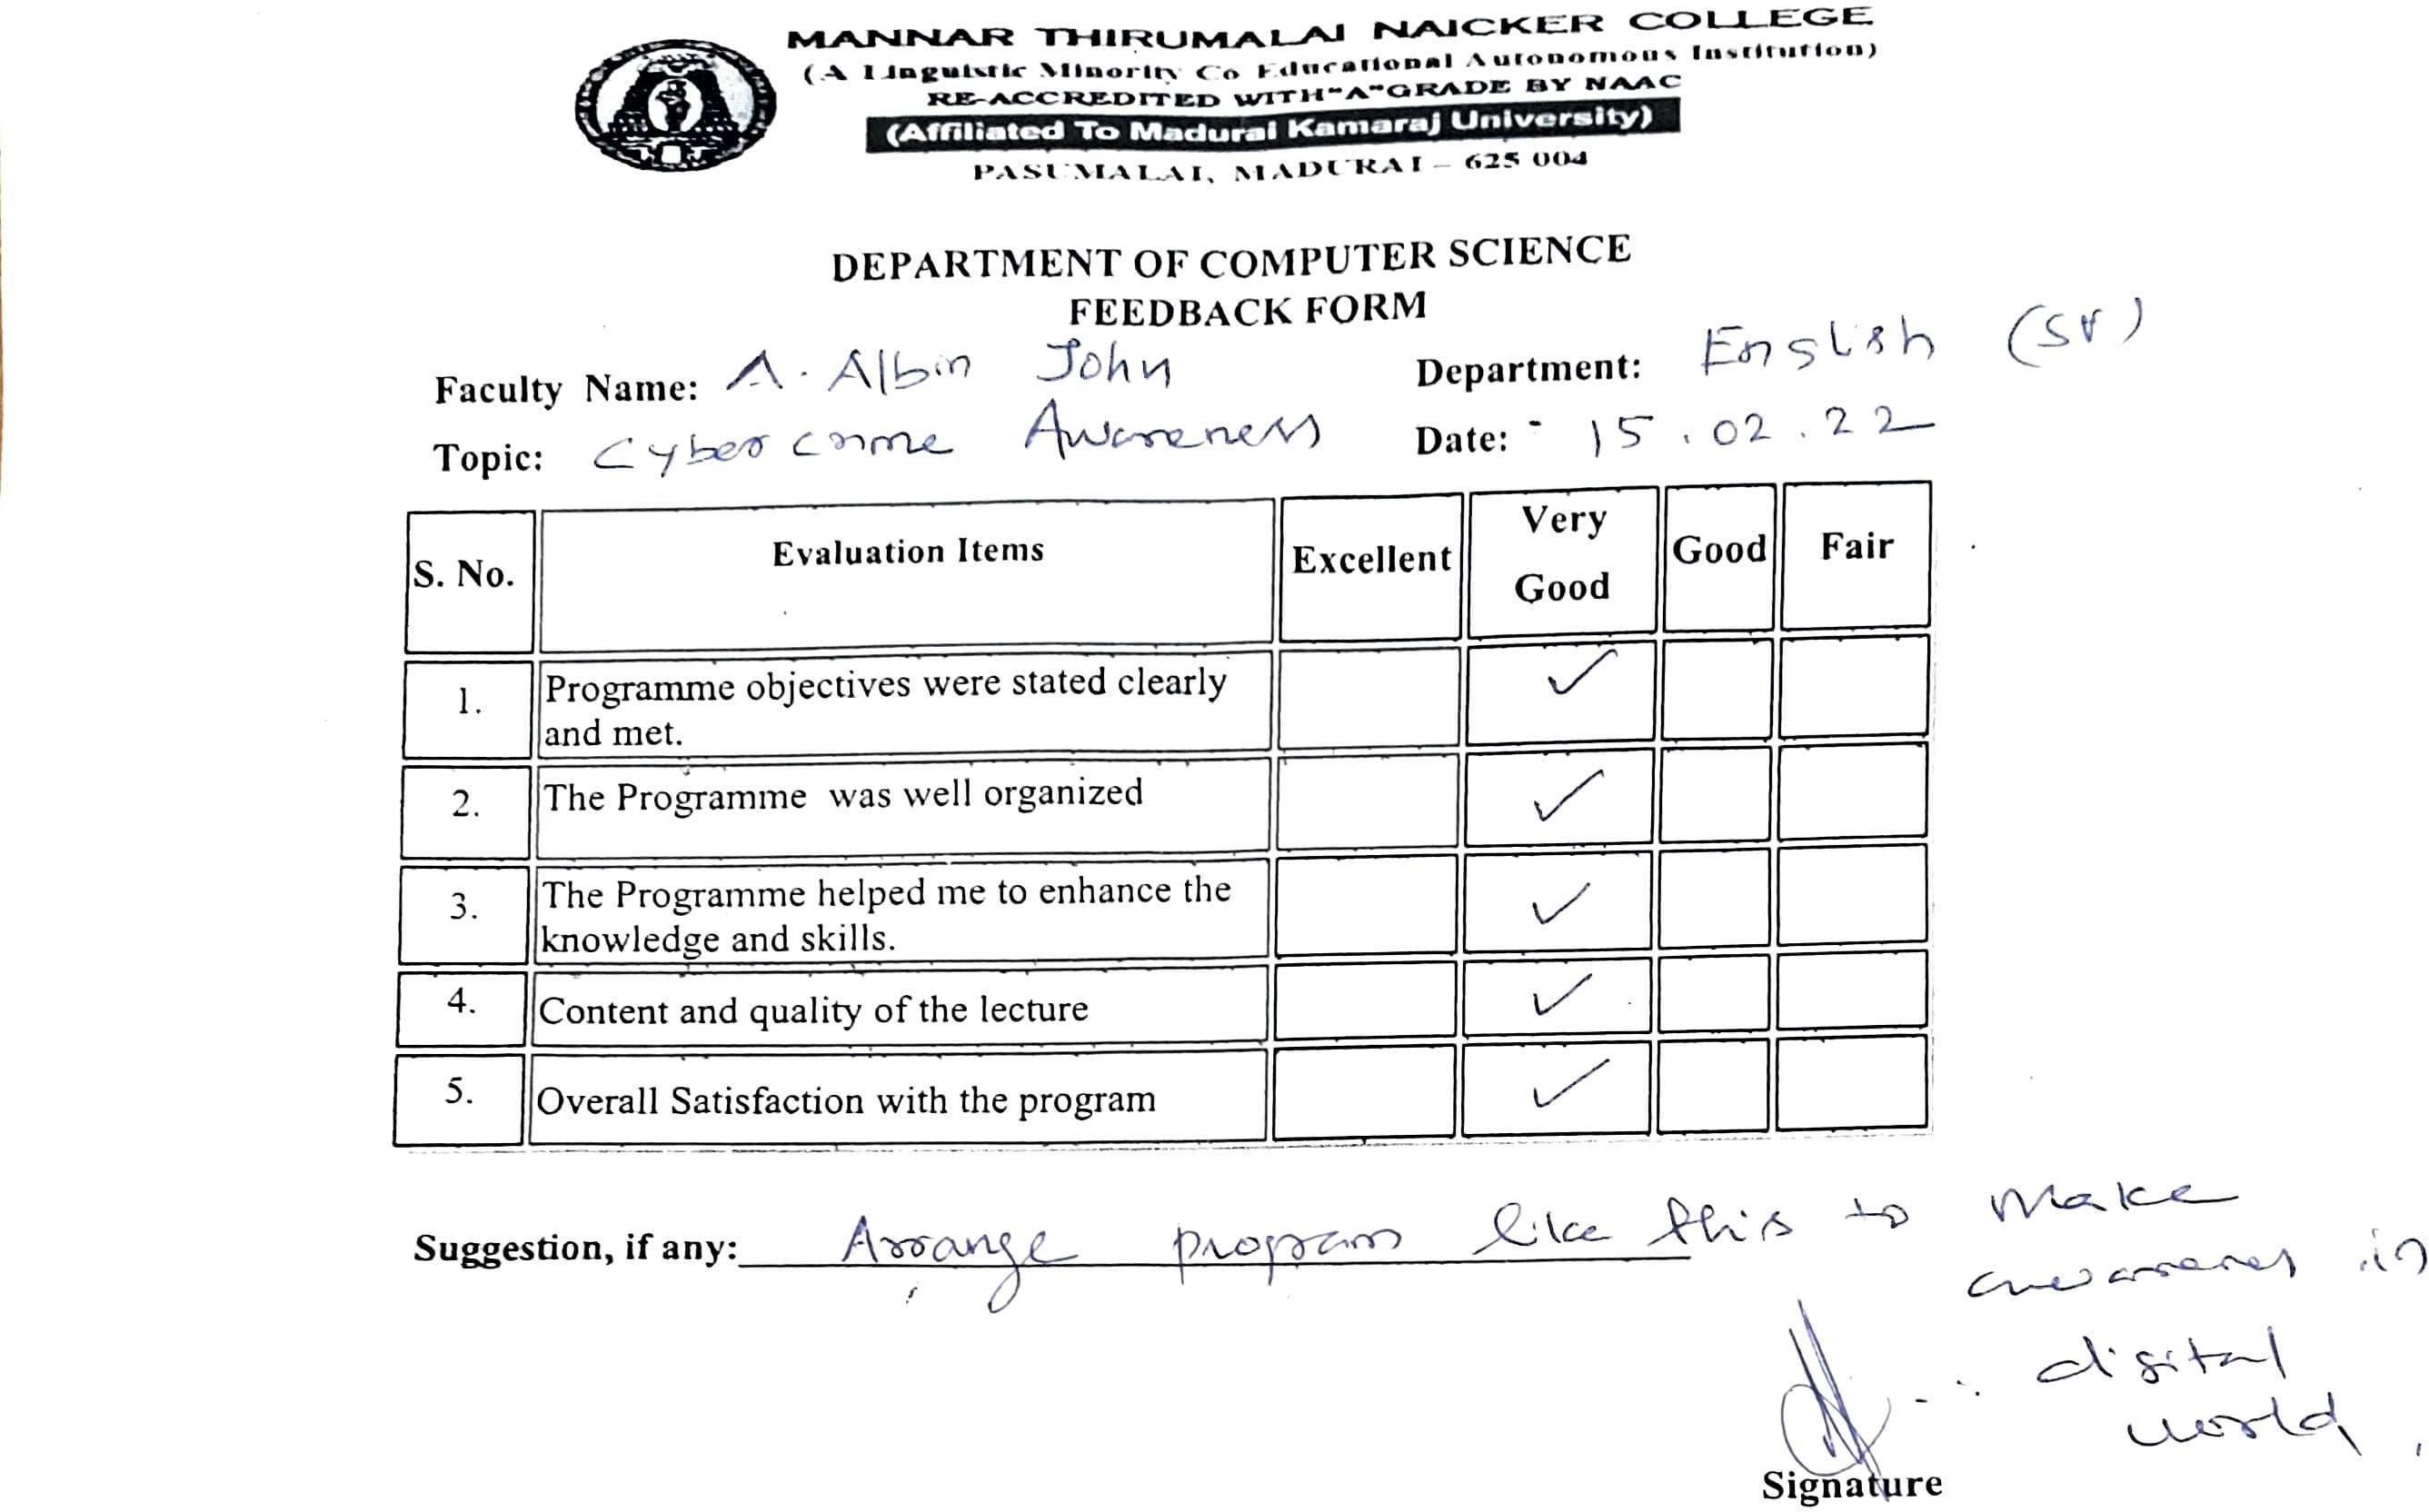 MANNAR THIRUMALAI NAICKER COLLEGE
(A Linguistic Minority Co Educational Autonomous Institution)
RE-ACCREDITED WITH "A" GRADE BY NAAC
(Affiliated To Madurai Kamaraj University)
PASUMALAI, MADURAI – 625 004
DEPARTMENT OF COMPUTER SCIENCE
FEEDBACK FORM
Faculty Name: A. Albin John Department: English (SF)
Topic: Cyber crime Awareness Date: 15.02.22
S. No. Evaluation Items Excellent Very Good Good Fair
1. Programme objectives were stated clearly ✓
and met.
2. The Programme was well organized ✓
3. The Programme helped me to enhance the ✓
knowledge and skills.
4. Content and quality of the lecture ✓
5. Overall Satisfaction with the program ✓
Suggestion, if any: Arrange program like this to make
awareness in
digital
world.
Signature